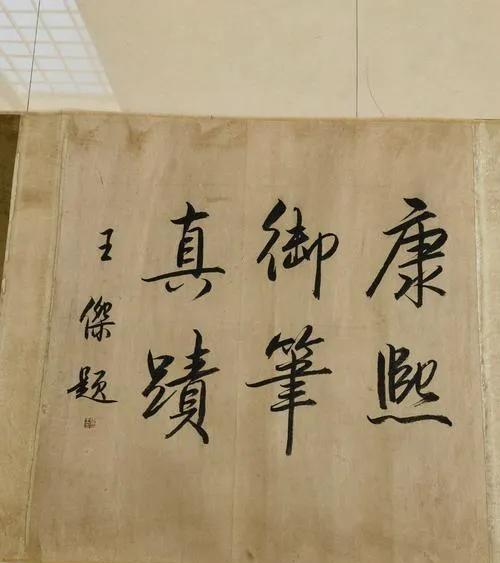 康熙
御筆
真蹟
王傑題